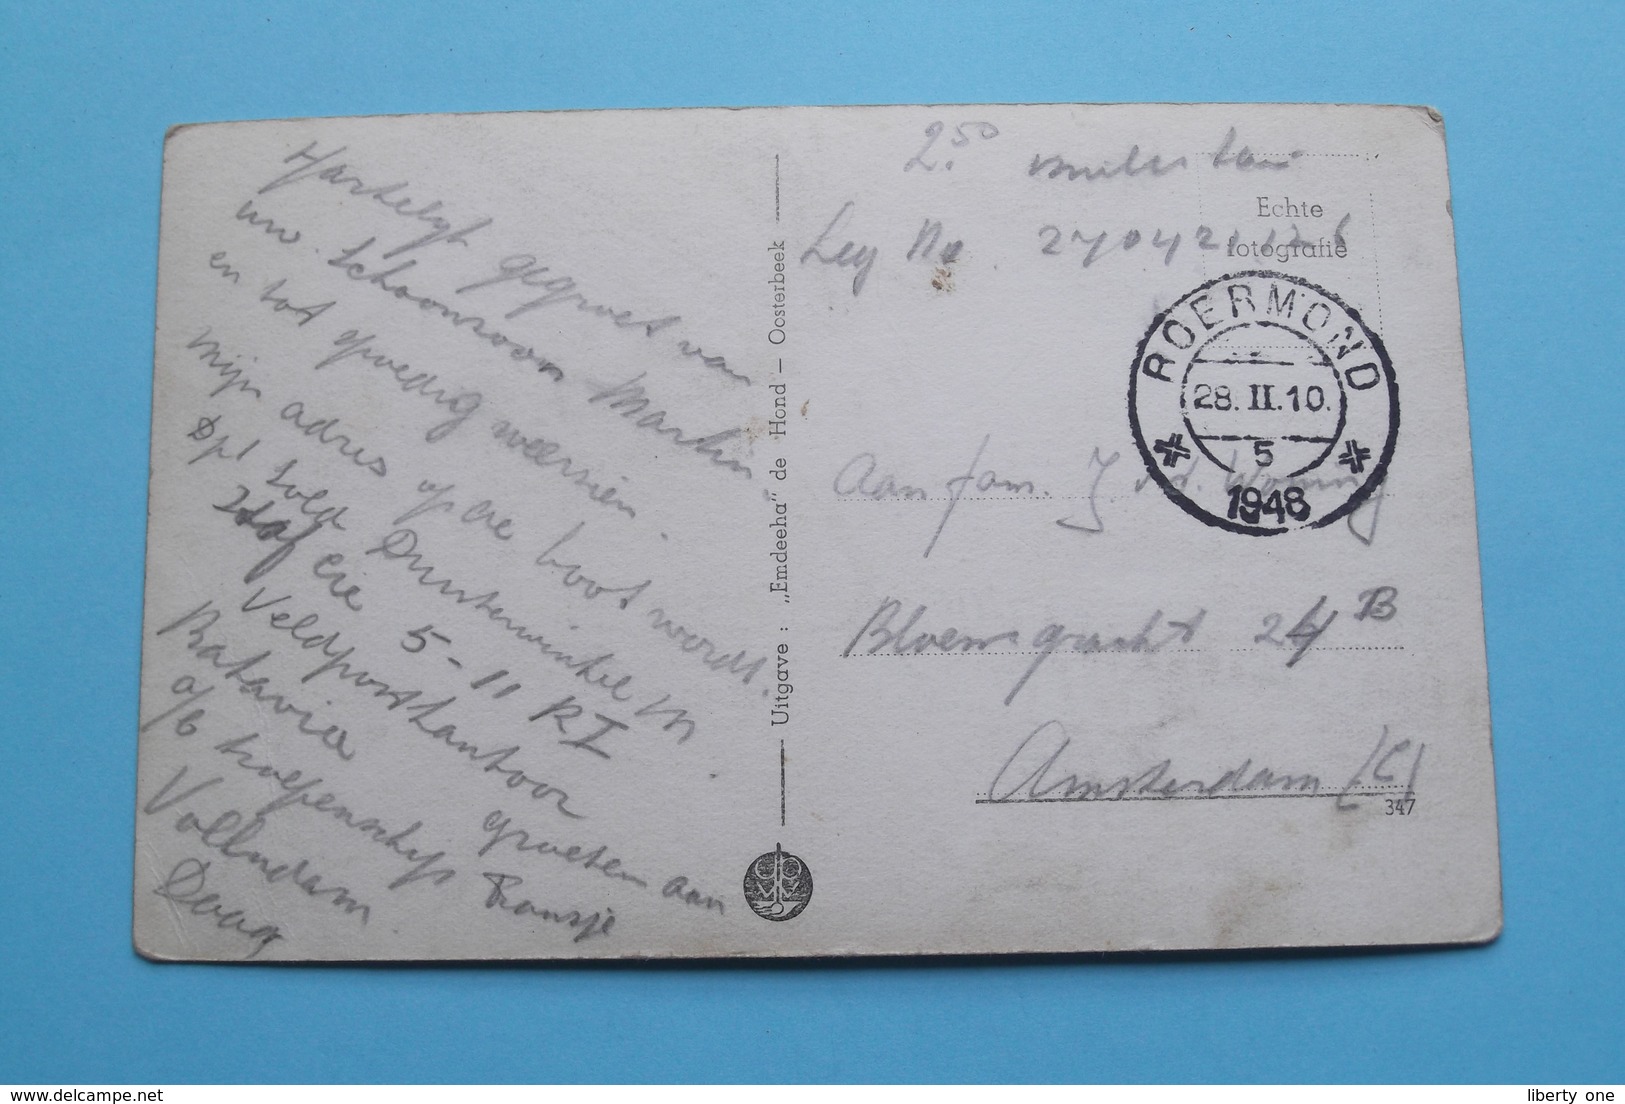 Hartelyk gegroet van
uw. schoonzoon Martin.
en tot spoedig weerzien.
Mijn adres op de boot wordt.
Dpl sold Dunterwinkel M
Staf cie 5-11 RI
Veldpostkantoor
Batavia
a/b troepenschip
Vollendam groeten aan
Daag Fransje
Uitgave : „Emdeeha" de Hond – Oosterbeek
2.50
Leg No. 270421126
Echte
fotografie
ROERMOND
28.II.10.
5
1948
Aan fam. J v.d. Woning
Bloemgracht 24 B
Amsterdam (C)
347
liberty one